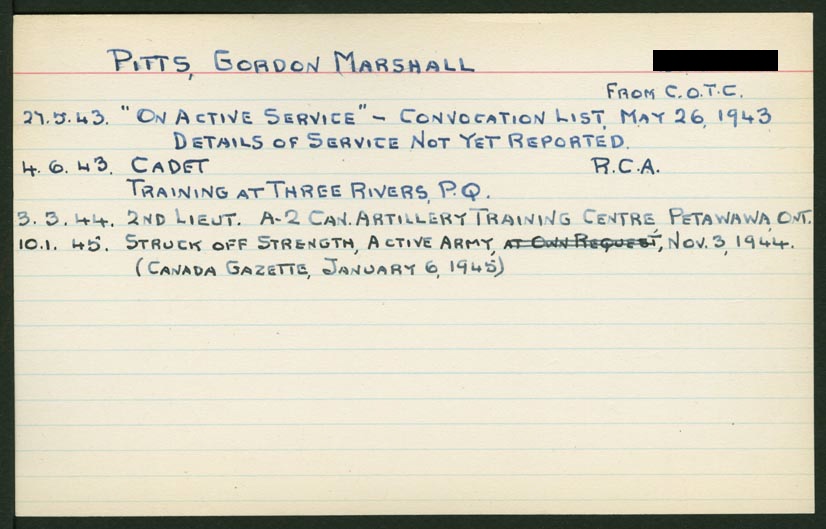 PITTS, GORDON MARSHALL
FROM C.O.T.C.
27.5.43. "ON ACTIVE SERVICE" - CONVOCATION LIST, MAY 26, 1943
DETAILS OF SERVICE NOT YET REPORTED.
4.6.43. CADET R.C.A.
TRAINING AT THREE RIVERS, P.Q.
3.3.44. 2ND LIEUT. A-2 CAN. ARTILLERY TRAINING CENTRE PETAWAWA, ONT.
10.1.45. STRUCK OFF STRENGTH, ACTIVE ARMY, AT OWN REQUEST, NOV. 3, 1944.
(CANADA GAZETTE, JANUARY 6, 1945)